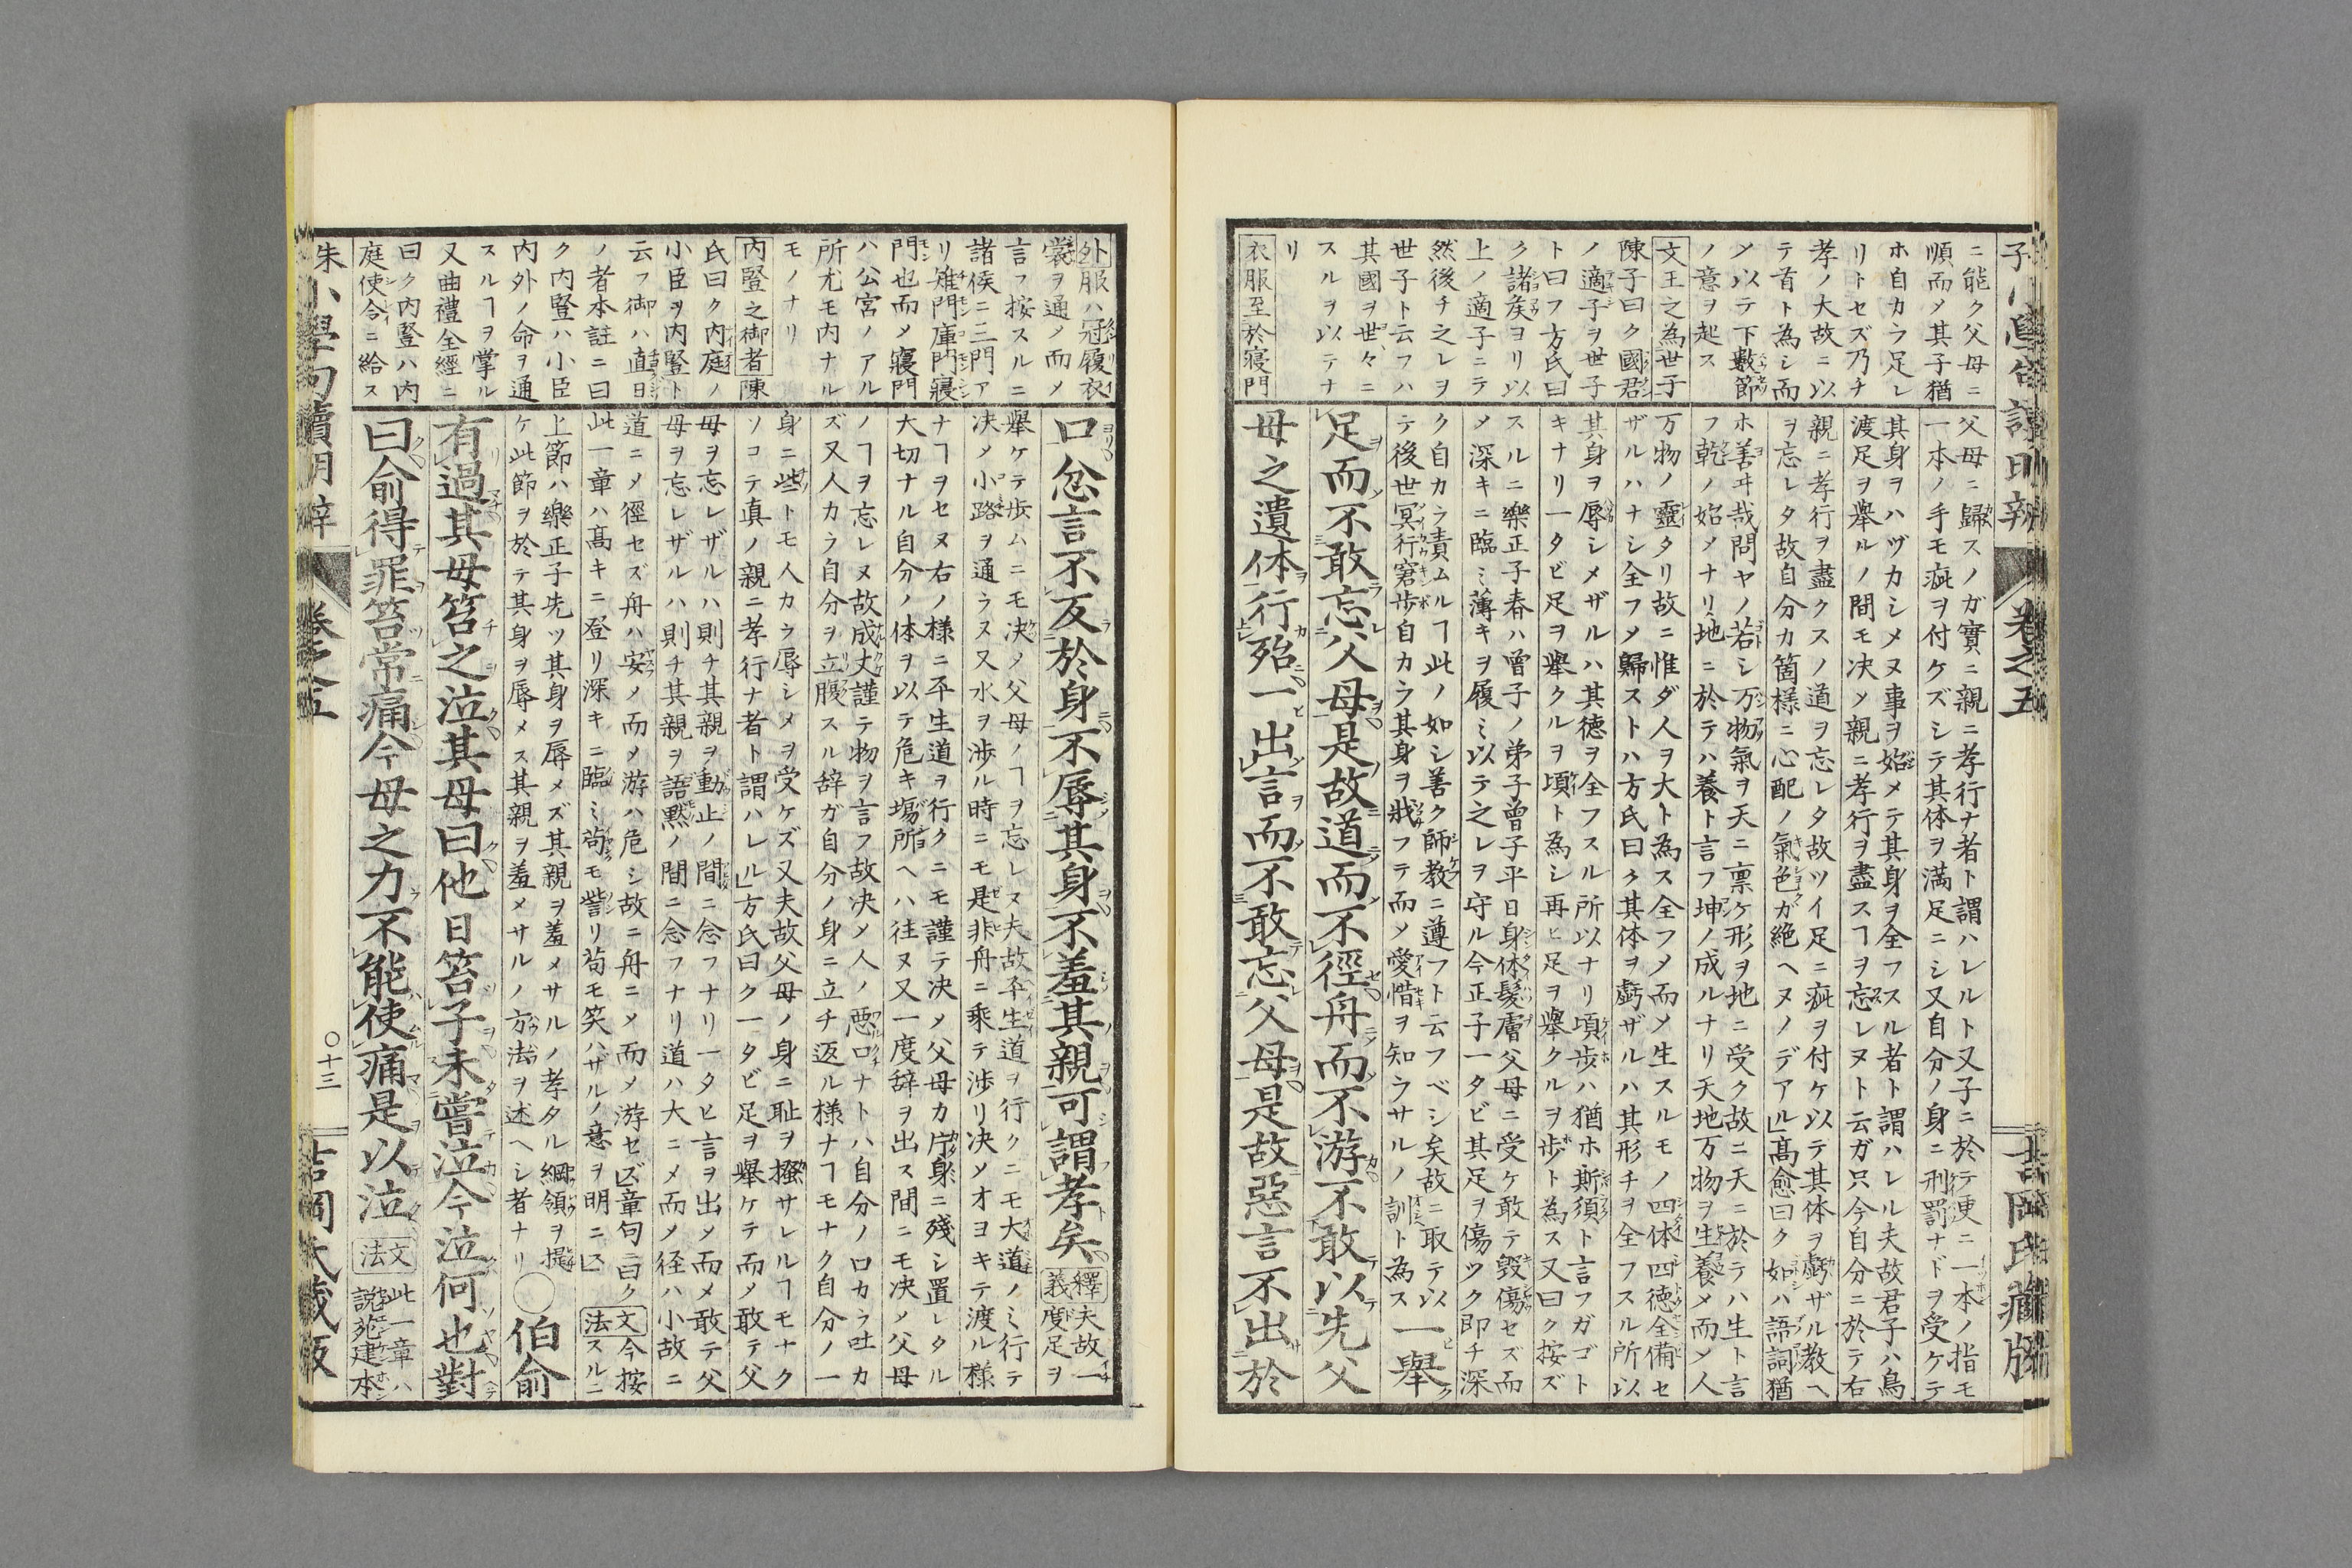 ニ能ク父母ニ
順而メ其子猶
ホ自カラ足レ
リトセズ乃チ
孝ノ大故ニ以
テ首ト為シ而
ノ以テ下數節
ノ意ヲ起ス
文王之為世子
陳子曰ク國君
ノ適子ヲ世子
ト曰フ方氏曰
ク諸矦ヨリ以
上ノ適子ニテ
然後チ之レヲ
世子ト云フハ
其國ヲ世々ニ
スルヲ以テナ
リ
衣服至於寢門
父母ニ歸スノガ實ニ親ニ孝行ナ者ト謂ハレルト又子ニ於テ更ニ一本ノ指モ
一本ノ手モ疵ヲ付ケズシテ其体ヲ満足ニシ又自分ノ身ニ刑罰ナドヲ受ケテ
其身ヲハヅカシメヌ事ヲ始メテ其身ヲ全フスル者ト謂ハレル夫故君子ハ鳥
渡足ヲ舉ルノ間モ决ノ親ニ孝行ヲ盡スヿヲ忘レヌト云ガ只今自分ニ於テ右
親ニ孝行ヲ盡クスノ道ヲ忘レタ故ツイ足ニ疵ヲ付ケ以テ其体ヲ虧ザル教ヘ
ヲ忘レタ故自分カ箇様ニ心配ノ氣色ガ絶ヘヌノデアル」髙愈曰ク如ハ語詞猶
ホ善ヰ哉問ヤノ若シ万物氣ヲ天ニ禀ケ形ヲ地ニ受ク故ニ天ニ於テハ生ト言
フ乾ノ始メナリ地ニ於テハ養ト言フ坤ノ成ルナリ天地万物ヲ生養メ而ノ人
万物ノ靈タリ故ニ惟ダ人ヲ大ト為ス全フメ而メ生スルモノ四体四徳全備セ
ザルハナシ全フメ歸ストハ方氏曰ク其体ヲ虧ザルハ其形チヲ全フスル所以
其身ヲ辱シメザルハ其徳ヲ全フスル所以ナリ頃歩ハ猶ホ斯須ト言フガゴト
キナリ一タビ足ヲ舉クルヲ頃ト為シ再ヒ足ヲ舉クルヲ歩ト為ス又曰ク按ズ
スルニ樂正子春ハ曽子ノ弟子曽子平日身体髮膚父母ニ受ケ敢テ毀傷セズ而
メ深キニ臨ミ薄キヲ履ミ以テ之レヲ守ル今正子一タビ其足ヲ傷ツク即チ深
ク自カラ責ムルヿ此ノ如シ善ク師教ニ遵フト云フベシ矣故ニ取テ以
テ後世冥行窘歩自カラ其身ヲ戕フテ而メ愛惜ヲ知ラサルノ訓ト為ス
一舉
足而不敢忘父母是故道而不徑舟而不游不敢以先父
母之遺体行殆一出言而不敢忘父母是故惡言不出於
卷之五
吉岡氏藏版
外服ハ冠履衣
裳ヲ通ノ而メ
言フ按スルニ
諸侯ニ三門ア
リ雉門庫門寢
門也而メ寢門
ハ公宮ノアル
所尤モ内ナル
モノナリ
内豎之御者陳
氏曰ク内庭ノ
小臣ヲ内豎ト
云フ御ハ直日
ノ者本註ニ曰
ク内豎ハ小臣
内外ノ命ヲ通
スルヿヲ掌ル
又曲禮全經ニ
曰ク内豎ハ内
庭使令ニ給ス
朱
口忿言不反於身不辱其身不羞其親可謂孝矣
釋義
夫故一
度足ヲ
舉ケテ歩ムニモ决ノ父母ノヿヲ忘レヌ夫故平生道ヲ行クニモ大道ノミ行テ
决メ小路ヲ通ラヌ又水ヲ渉ル時ニモ是非舟ニ乘テ渉リ决ソオヨキテ渡ル様
ナヿヲセヌ右ノ様ニ平生道ヲ行クニモ謹テ决メ父母カ疔身ニ殘シ置レタル
大切ナル自分ノ体ヲ以テ危キ場所ヘハ往ヌ又一度辞ヲ出ス間ニモ决ノ父母
ノヿヲ忘レヌ故成丈謹テ物ヲ言フ故决メ人ノ惡口ナトハ自分ノロカラ吐カ
ズ又人カラ自分ヲ立腹スル辞ガ自分ノ身ニ立チ返ル様ナヿモナク自分ノ一
身ニ些トモ人カラ辱シメヲ受ケズ又夫故父母ノ身ニ耻ヲ掻サレルヿモナク
ソコテ真ノ親ニ孝行ナ者ト謂ハレル」方氏曰ク一タビ足ヲ舉ケテ而メ敢テ父
母ヲ忘レザルハ則チ其親ヲ動止ノ間ニ念フナリ一タヒ言ヲ出メ而メ敢テ父
母ヲ忘レザルハ則チ其親ヲ語黙ノ間ニ念フナリ道ハ大ニメ而メ径ハ小故ニ
道ニメ徑セズ舟ハ安ノ而メ游ハ危シ故ニ舟ニメ而メ游セズ」章句ニ曰ク
此一章ハ髙キニ登リ深キニ臨ミ苟モ訾リ苟モ笑ハザルノ意ヲ明ニス」
文法
今按
スルニ
上節ハ樂正子先ツ其身ヲ辱メズ其親ヲ羞メサルノ孝タル綱領ヲ提
ケ此節ヲ於テ其身ヲ辱メス其親ヲ羞メサルノ方法ヲ述ヘシ者ナリ
○伯俞
有過其母笞之泣其母曰他日笞子未嘗泣今泣何也對
曰俞得罪笞常痛今母之力不能使痛是以泣
文法
此一章ハ
說苑建本
小學句讀明辞
卷之五
○十三
吉岡氏藏版